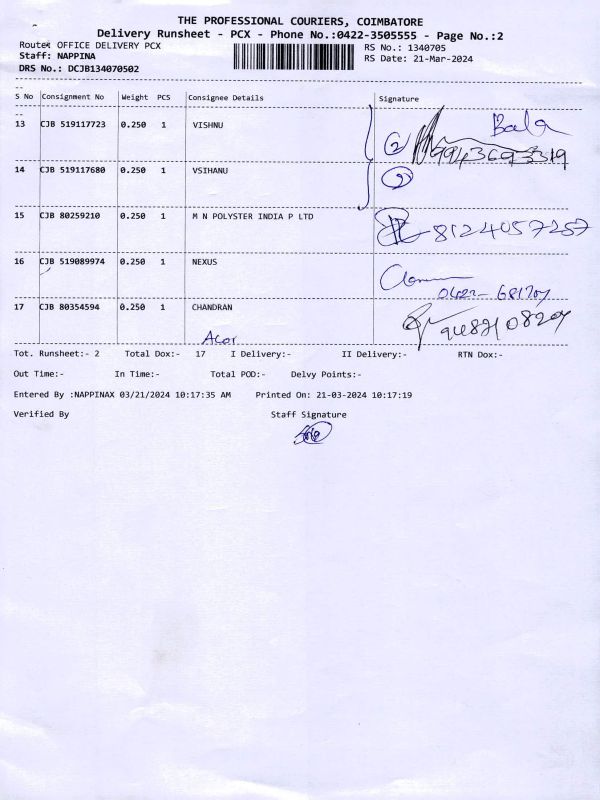 THE PROFESSIONAL COURIERS, COIMBATORE
Delivery Runsheet - PCX - Phone No.:0422-3505555 - Page No.:2
Route: OFFICE DELIVERY PCX
RS No.: 1340705
Staff: NAPPINA
RS Date: 21-Mar-2024
DRS No.: DCJB134070502
S No Consignment No Weight PCS Consignee Details Signature
13 CJB 519117723 0.250 1 VISHNU 2 Bala
9943693319
14 CJB 519117680 0.250 1 VSIHANU
15 CJB 80259210 0.250 1 M N POLYSTER INDIA P LTD 8124057257
16 CJB 519089974 0.250 1 NEXUS
0422-
17 CJB 80354594 0.250 1 CHANDRAN
Tot. Runsheet:- 2 Total Dox:- 17 I Delivery:- II Delivery:- RTN Dox:-
Out Time:- In Time:- Total POD:- Delvy Points:-
Entered By :NAPPINAX 03/21/2024 10:17:35 AM Printed On: 21-03-2024 10:17:19
Verified By Staff Signature